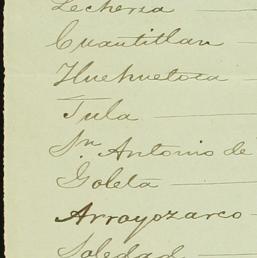 Lecheria
Cuantitlan
Huehuetoca
Tula
Sn. Antonio de
Goleta
Arroyozarco
Soledad